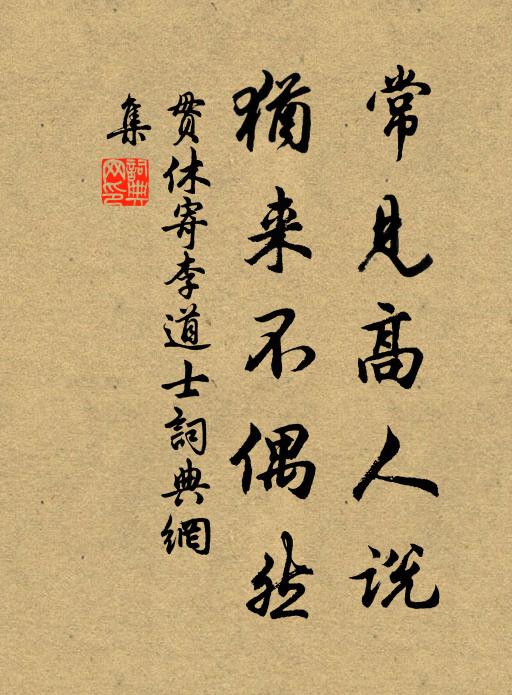 常見高人說
猶來不偶然
貫休寄李道士詞典網
集
詞典網印